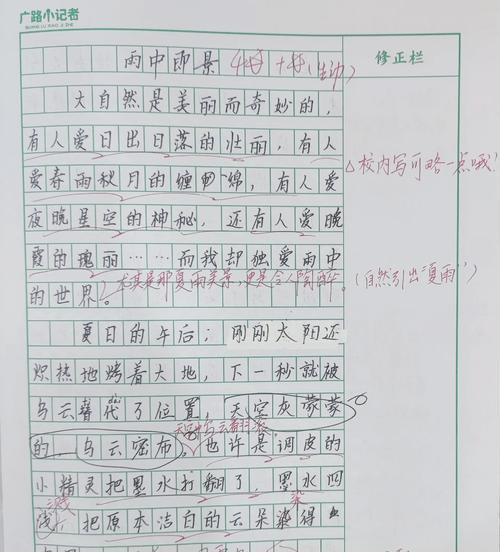 广路小记者
GUANG LU XIAO JI ZHE
修正栏
雨中即景
(生动)
大自然是美丽而奇妙的,
有人爱日出日落的壮丽,有人
△校内写可略一点哦!
爱春雨秋月的缠绵,有人爱
夜晚星空的神秘,还有人爱晚
霞的瑰丽……而我却独爱雨中
的世界。尤其是那夏雨美景,更是令人陶醉。(自然引出"夏雨")
夏日的午后;刚刚太阳还
炽热地烤着大地,下一秒就被
乌云替代了位置,天空灰蒙蒙
的,乌云密布,也许是调皮的
小精灵把墨水打翻了,墨水四
溅
染
浅,把原本洁白的云朵得